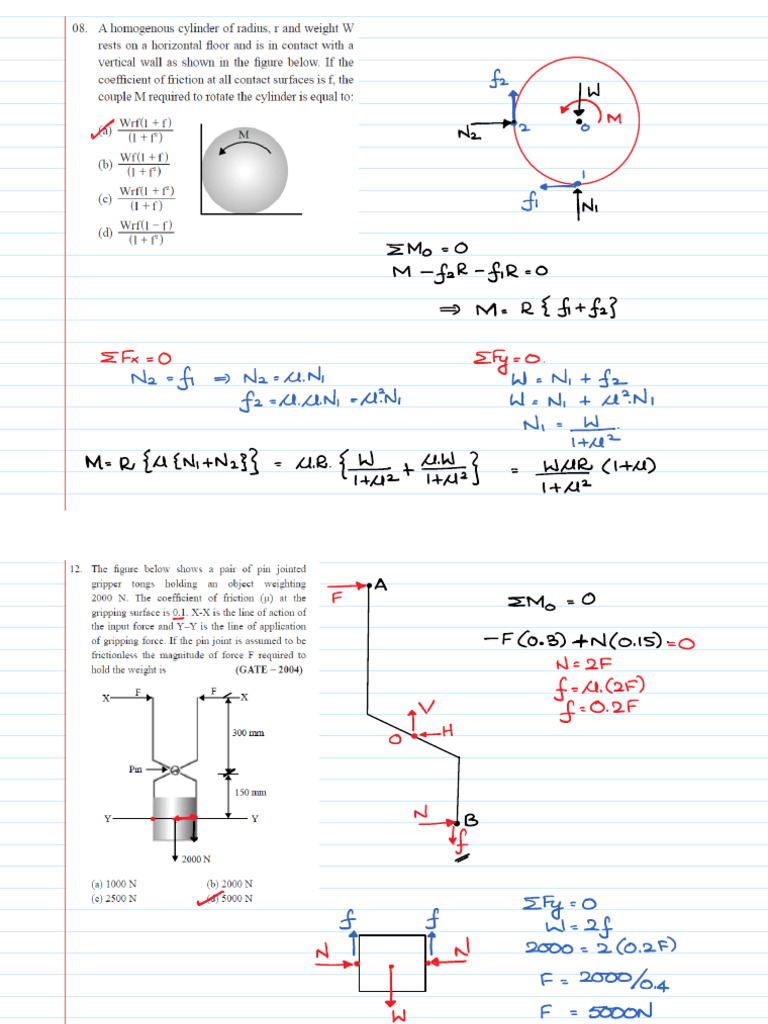 08. A homogenous cylinder of radius, r and weight W
rests on a horizontal floor and is in contact with a
vertical wall as shown in the figure below. If the
coefficient of friction at all contact surfaces is f, the
couple M required to rotate the cylinder is equal to:
(a) Wrf(1 + f) / (1 + f²)
(b) Wf(1 + f) / (1 + f²)
(c) Wrf(1 + f²) / (1 + f)
(d) Wrf(1 − f) / (1 + f²)
M
f2
W
M
N2
2
O
1
f1
N1
ΣMo = 0
M − f2R − f1R = 0
⇒ M = R { f1 + f2 }
ΣFx = 0
N2 = f1 ⇒ N2 = μ.N1
f2 = μ.μ.N1 = μ².N1
ΣFy = 0.
W = N1 + f2
W = N1 + μ².N1
N1 = W / 1+μ²
M = R { μ {N1+N2} } = μ.R. { W / 1+μ² + μ.W / 1+μ² } = WμR / 1+μ² (1+μ)
12. The figure below shows a pair of pin jointed
gripper tongs holding an object weighting
2000 N. The coefficient of friction (μ) at the
gripping surface is 0.1. X-X is the line of action of
the input force and Y–Y is the line of application
of gripping force. If the pin joint is assumed to be
frictionless the magnitude of force F required to
hold the weight is (GATE – 2004)
X F F X
300 mm
Pin
150 mm
Y Y
2000 N
(a) 1000 N (b) 2000 N
(c) 2500 N (d) 5000 N
F A
V
O H
N B
f
ΣMo = 0
−F(0.3) + N(0.15) = 0
N = 2F
f = μ.(2F)
f = 0.2F
f f
N N
W
ΣFy = 0
W = 2f
2000 = 2(0.2F)
F = 2000/0.4
F = 5000N